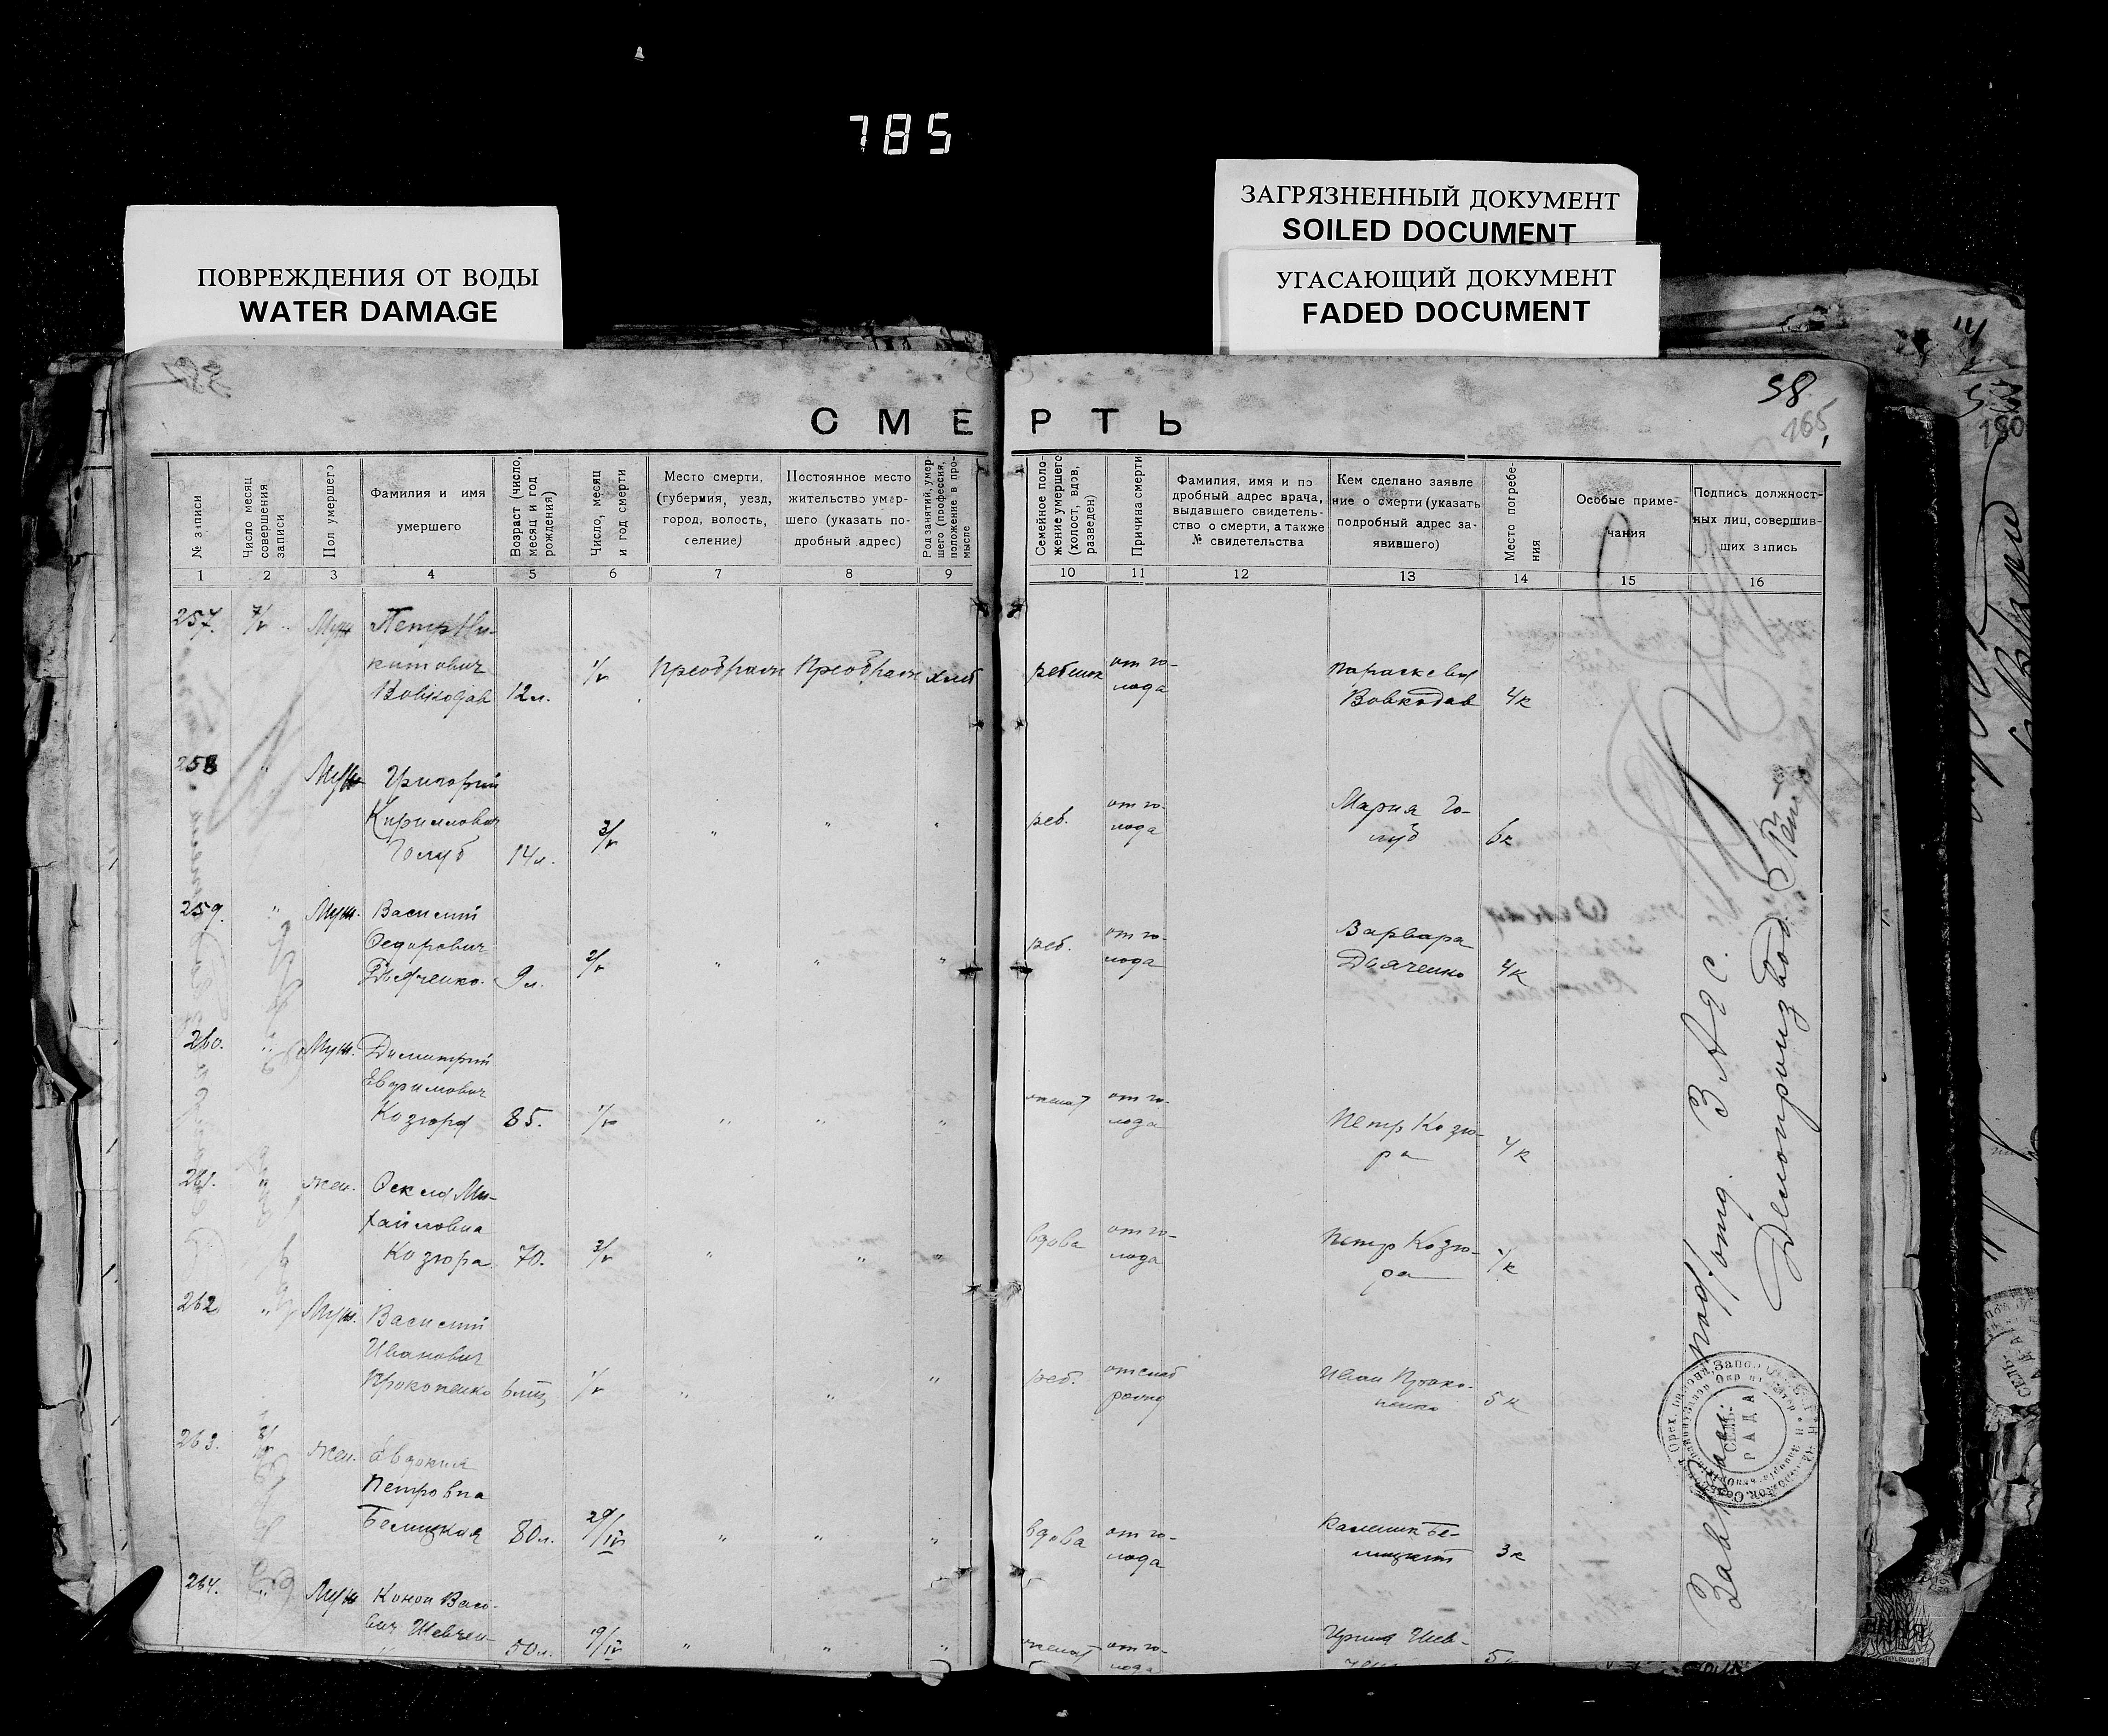 785
ПОВРЕЖДЕНИЯ ОТ ВОДЫ
WATER DAMAGE
ЗАГРЯЗНЕННЫЙ ДОКУМЕНТ
SOILED DOCUMENT
УГАСАЮЩИЙ ДОКУМЕНТ
FADED DOCUMENT
58.
165
СМЕРТЬ
№ записи
Число месяц совершения записи
Пол умершего
Фамилия и имя умершего
Возраст (число, месяц и год рождения)
Число, месяц и год смерти
Место смерти, (губерния, уезд, город, волость, селение)
Постоянное место жительство умершего (указать подробный адрес)
Род занятий, умершего (профессия, положение в промысле
Семейное положение умершего (холост, вдов, разведен)
Причина смерти
Фамилия, имя и подробный адрес врача, выдавшего свидетельство о смерти, а также № свидетельства
Кем сделано заявление о смерти (указать подробный адрес заявившего)
Место погребения
Особые примечания
Подпись должностных лиц, совершивших запись
1 2 3 4 5 6 7 8 9 10 11 12 13 14 15 16
257. 7/V Муж Петр Ни-
китович
Вовкодав 12л. 1/V Преображ Преображ хлеб ребенок от го-
лода Параскева
Вовкодав 4к
258 " Муж Григорий
Кириллович
Голуб 14л. 3/V " " " реб. от го-
лода Мария Го-
луб 6к
259. " Муж. Василий
Федорович
Дьяченко. 9л. 2/V " " " реб. от го-
лода Варвара
Дьяченко 4к
260. " Муж. Димитрий
Евфимович
Козюра 85. 1/V " " " женат от го-
лода Петр Козю-
ра 4к
261. жен. Фекла Ми-
хайловна
Козюра 70. 3/V " " " вдова от го-
лода Петр Козю-
ра
262 " Муж. Василий
Иванович
Прокопенко 1/V " " " реб. Иван Проко-
пенко 5к
263. жен. Евдокия
Петровна
Белицкая 80л. 29/IV " " " вдова от го-
лода Бе-
лицкий 3к
264. " Муж Конон
Шевчен- 50л. 19/IV " " " женат от го-
лода Шев-
5к
Зав подотд. ЗАГС
Делопроизвод.
СЕЛЬ-
РАДА